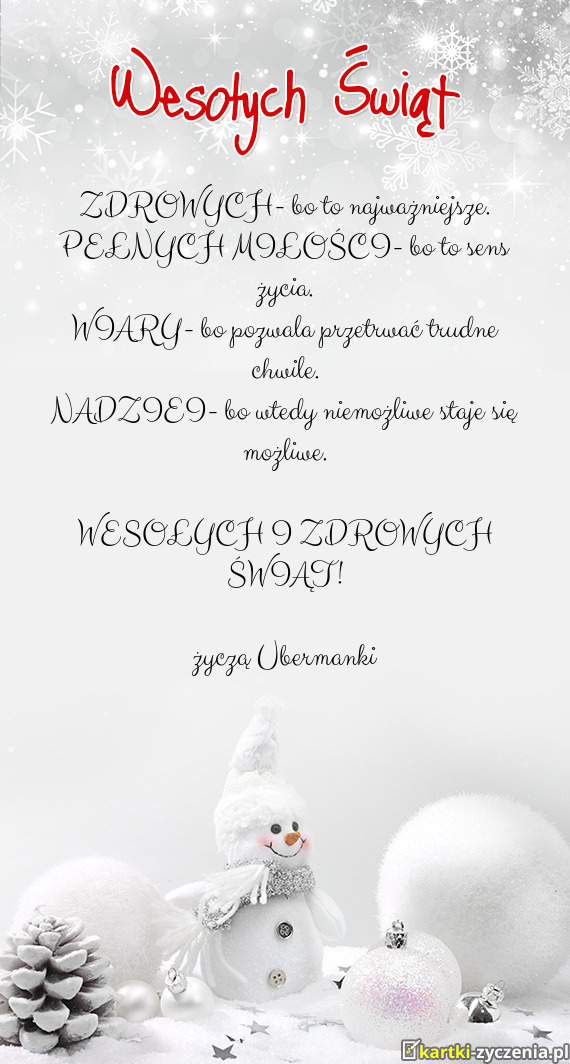 Wesołych Świąt
ZDROWYCH- bo to najważniejsze.
PEŁNYCH MIŁOŚCI- bo to sens
życia.
WIARY- bo pozwala przetrwać trudne
chwile.
NADZIEI- bo wtedy niemożliwe staje się
możliwe.
WESOŁYCH I ZDROWYCH
ŚWIĄT!
życzą Ubermanki
kartki-zyczenia.pl